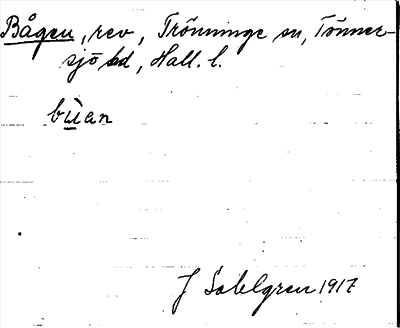 Bågen, rev, Trönninge sn, Tönner-
sjö hd, Hall. l.
bùan
J Sahlgren 1917